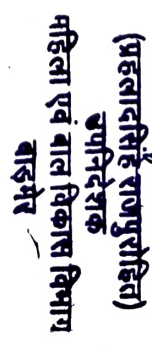 (प्रहलादसिंह राजपुरोहित)
उपनिदेशक
महिला एवं बाल विकास विभाग
बाड़मेर